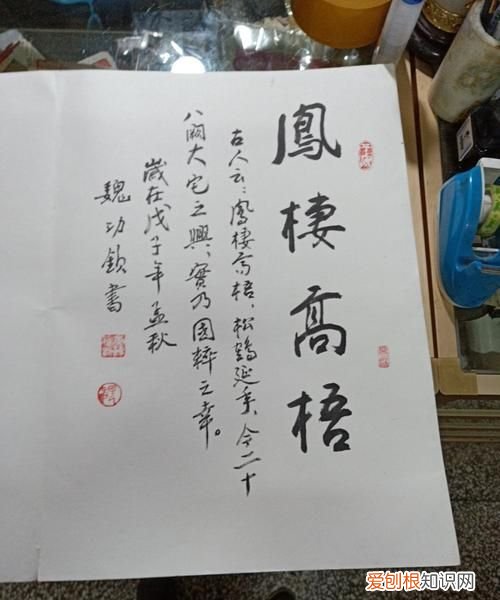 鳳棲高梧
古人云：鳳棲高梧，松鶴延年，今二十
八闕大宅之興，實乃國粹之幸。
歲在戊子年孟秋
魏功欽書
爱刨根知识网
www.baogen.com